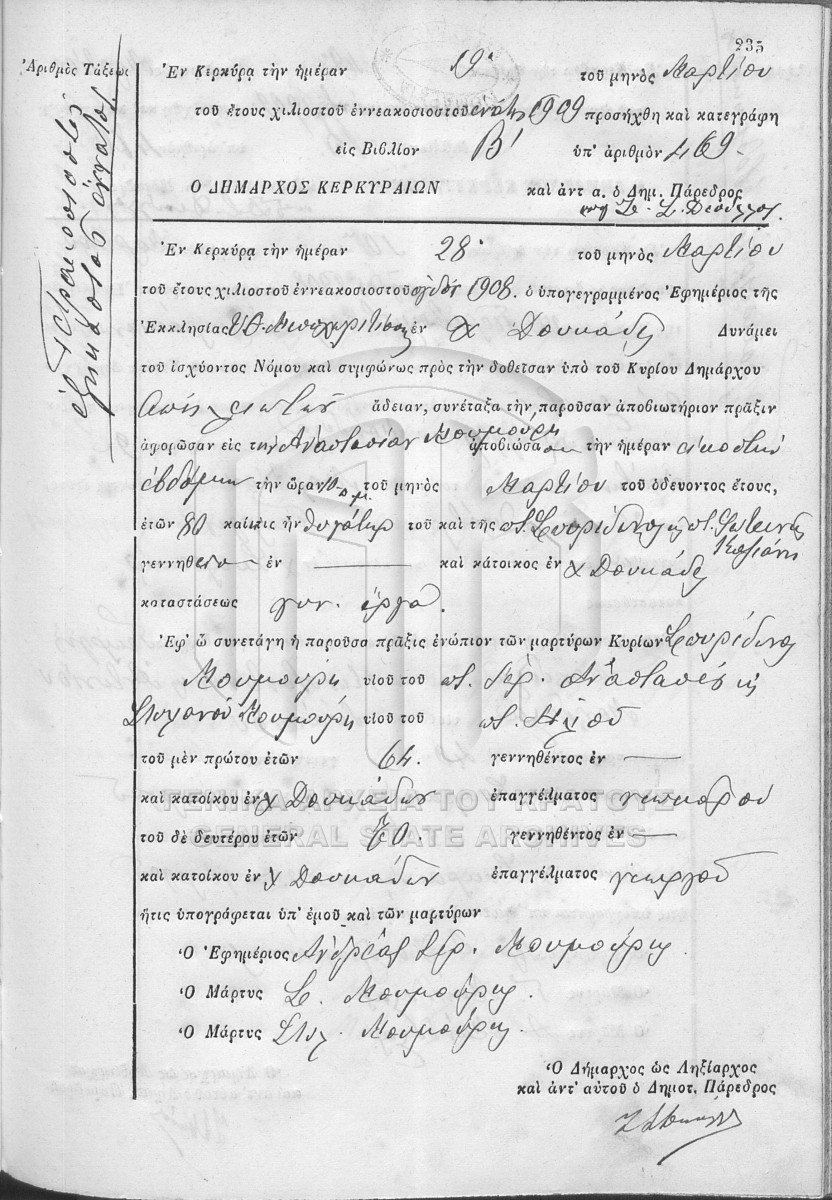 235
Ἀριθμὸς Τάξεως
Τετρακοσιοστὸς
ἑξηκοστὸς ἔννατος
Ἐν Κερκύρᾳ τὴν ἡμέραν 19 τοῦ μηνὸς Μαρτίου
τοῦ ἔτους χιλιοστοῦ ἐννεακοσιοστοῦ ἐνάτου 1909 προσήχθη καὶ κατεγράφη
εἰς Βιβλίον Β' ὑπ' ἀριθμὸν 469
Ο ΔΗΜΑΡΧΟΣ ΚΕΡΚΥΡΑΙΩΝ καὶ ἀντ α. ὁ Δημ. Πάρεδρος
Ἐν Κερκύρᾳ τὴν ἡμέραν 28 τοῦ μηνὸς Μαρτίου
τοῦ ἔτους χιλιοστοῦ ἐννεακοσιοστοῦ ὀγδόου 1908 ὁ ὑπογεγραμμένος Ἐφημέριος τῆς
Ἐκκλησίας ἐν χ Δουκάδες Δυνάμει
τοῦ ἰσχύοντος Νόμου καὶ συμφώνως πρὸς τὴν δοθεῖσαν ὑπὸ τοῦ Κυρίου Δημάρχου
ἄδειαν, συνέταξα τὴν παροῦσαν ἀποβιωτήριον πρᾶξιν
ἀφορῶσαν εἰς τὴν Ἀναστασίαν Μουμούρη ἀποβιώσασαν τὴν ἡμέραν εἰκοστὴν
ἑβδόμην τὴν ὥραν 10 π.μ. τοῦ μηνὸς Μαρτίου τοῦ ὁδεύοντος ἔτους,
ἐτῶν 80 καὶ ἥτις ἦν θυγάτηρ τοῦ καὶ τῆς ποτ. Σπυρίδωνος καὶ ποτ. Φωτεινῆς
γεννηθεῖσα ἐν — καὶ κάτοικος ἐν χ Δουκάδες
καταστάσεως γυν. ἔργα.
Ἐφ' ᾧ συνετάγη ἡ παροῦσα πρᾶξις ἐνώπιον τῶν μαρτύρων Κυρίων Σπυρίδωνος
Μουμούρη υἱοῦ τοῦ ποτ. Ἀναστασίου καὶ
Στυλιανοῦ Μουμούρη υἱοῦ τοῦ ποτ.
τοῦ μὲν πρώτου ἐτῶν 64. γεννηθέντος ἐν —
καὶ κατοίκου ἐν χ Δουκάδων ἐπαγγέλματος γεωργοῦ
τοῦ δὲ δευτέρου ἐτῶν 70 γεννηθέντος ἐν —
καὶ κατοίκου ἐν χ Δουκάδων ἐπαγγέλματος γεωργοῦ
ἥτις ὑπογράφεται ὑπ' ἐμοῦ καὶ τῶν μαρτύρων
Ὁ Ἐφημέριος Ἀνδρέας Ἱερ. Μουμούρης.
Ὁ Μάρτυς Σ. Μουμούρης.
Ὁ Μάρτυς Στυλ. Μουμούρης.
Ὁ Δήμαρχος ὡς Ληξίαρχος
καὶ ἀντ' αὐτοῦ ὁ Δημοτ. Πάρεδρος
ΓΕΝΙΚΑ ΑΡΧΕΙΑ ΤΟΥ ΚΡΑΤΟΥΣ
GENERAL STATE ARCHIVES